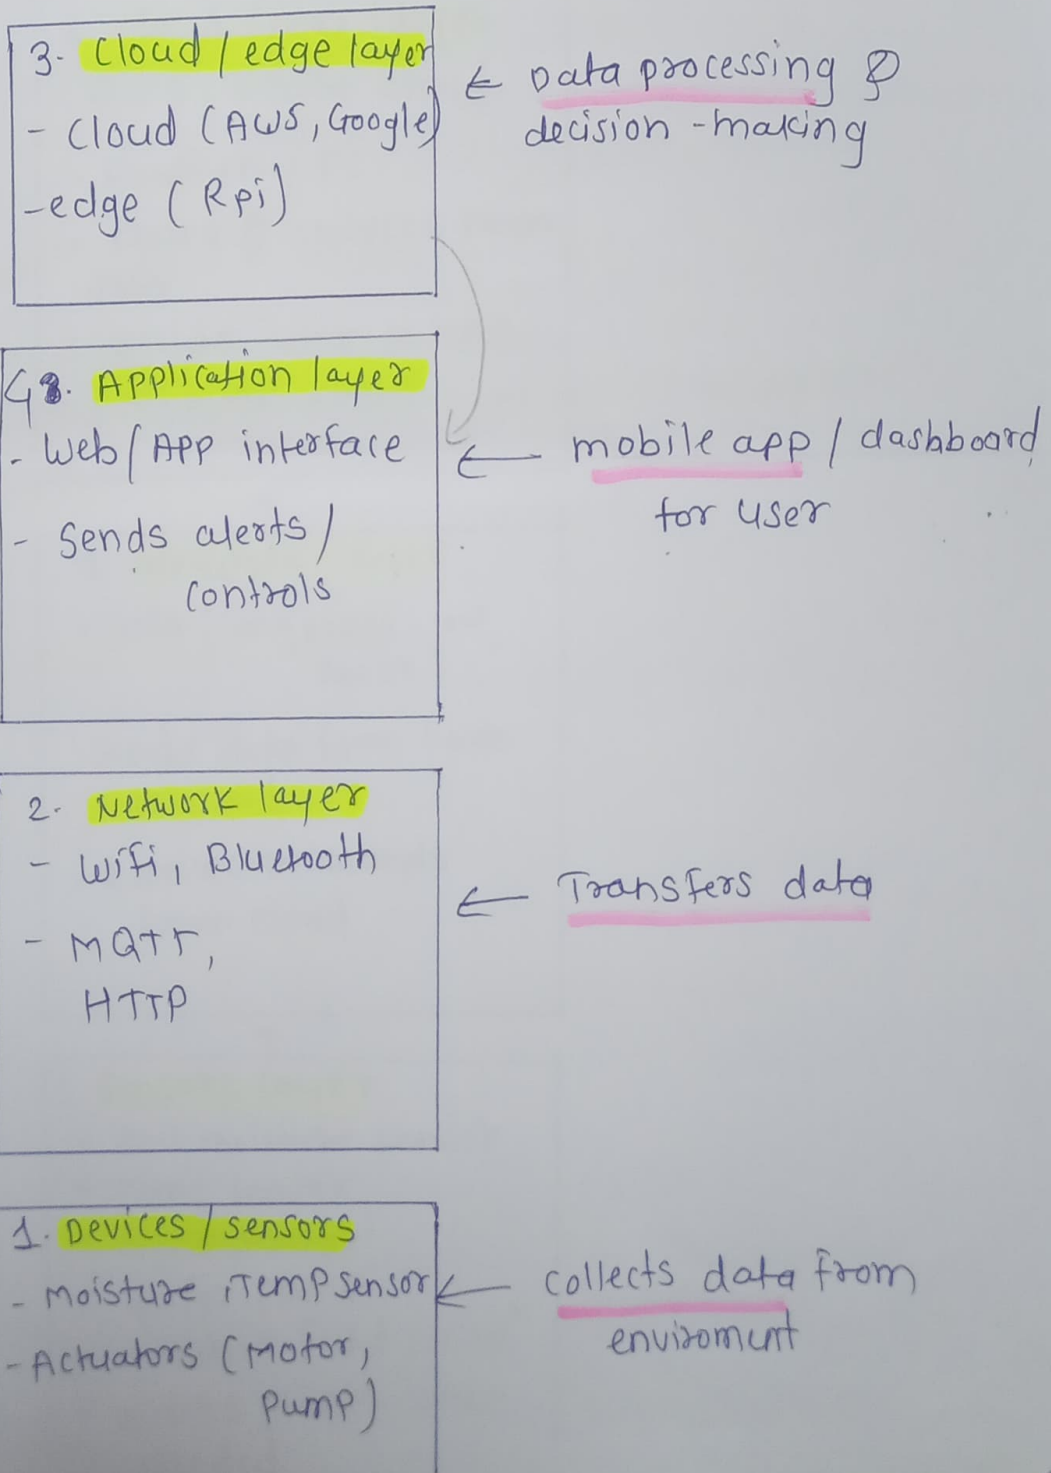 3. Cloud / edge layer
- Cloud (AWS, Google)
- edge (Rpi)
← Data processing &
decision-making
4. Application layer
- Web / APP interface
- Sends alerts /
controls
← mobile app / dashboard
for user
2. Network layer
- Wifi, Bluetooth
- MQTT,
HTTP
← Transfers data
1. Devices / sensors
- Moisture, Temp sensor
- Actuators (Motor,
Pump)
← collects data from
enviroment